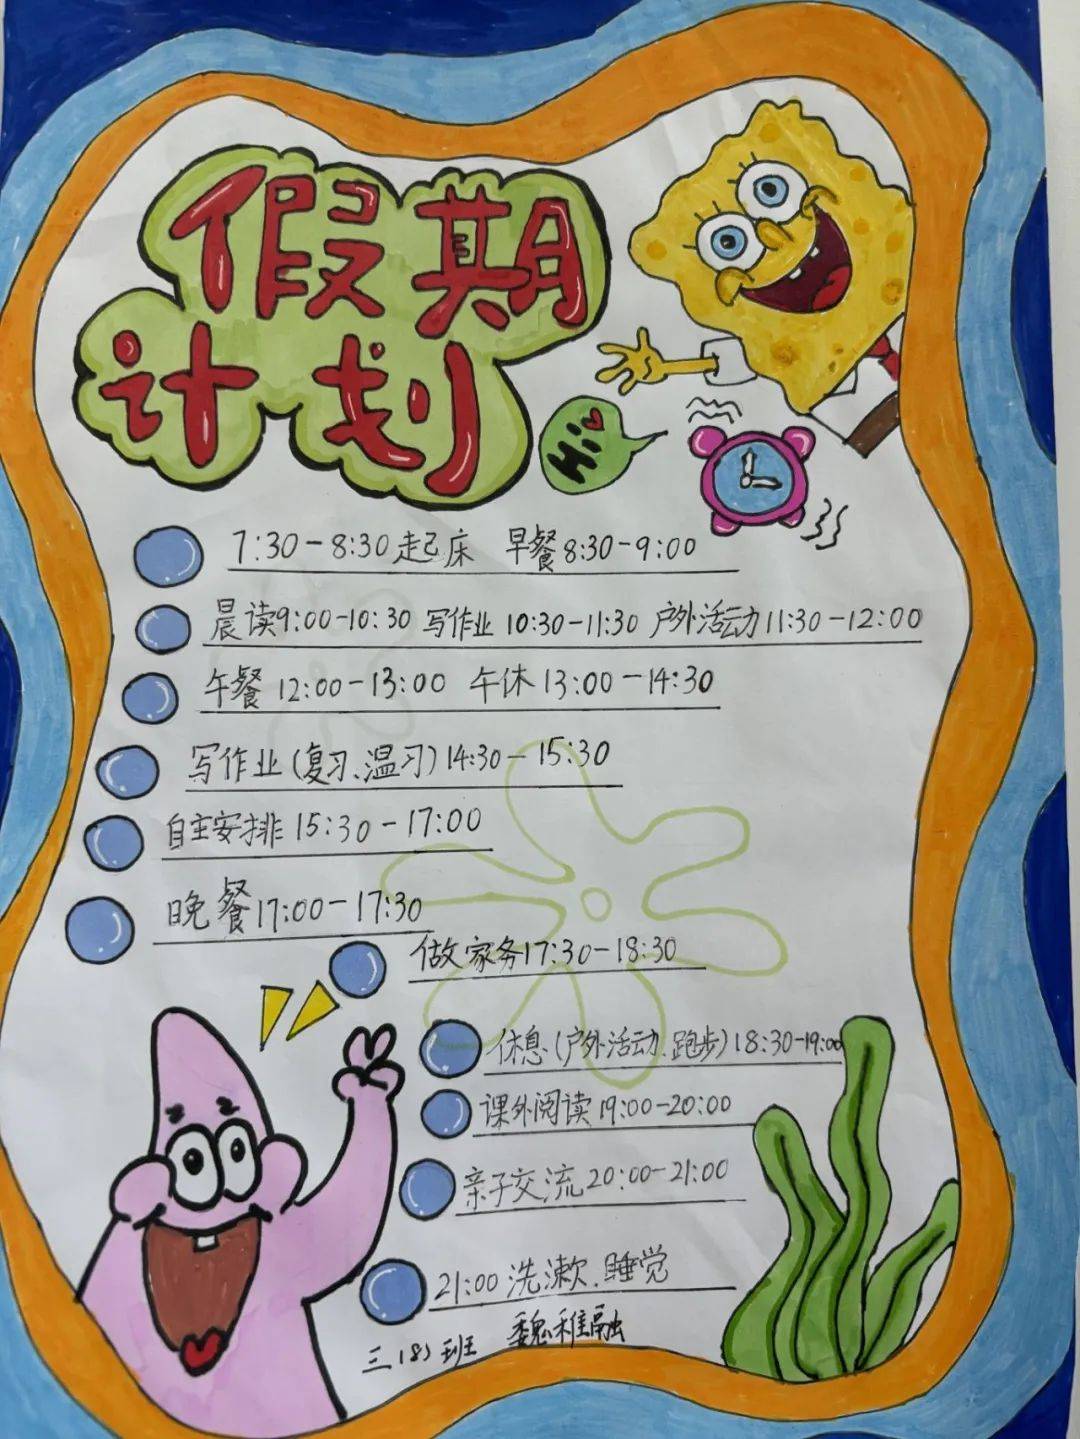 假期
计划
Hi
7:30-8:30起床 早餐8:30-9:00
晨读9:00-10:30 写作业10:30-11:30 户外活动11:30-12:00
午餐 12:00-13:00 午休13:00-14:30
写作业(复习、温习)14:30-15:30
自主安排15:30-17:00
晚餐17:00-17:30
做家务17:30-18:30
休息(户外活动、跑步)18:30-19:00
课外阅读19:00-20:00
亲子交流20:00-21:00
21:00洗漱、睡觉
三(8)班 魏稚融